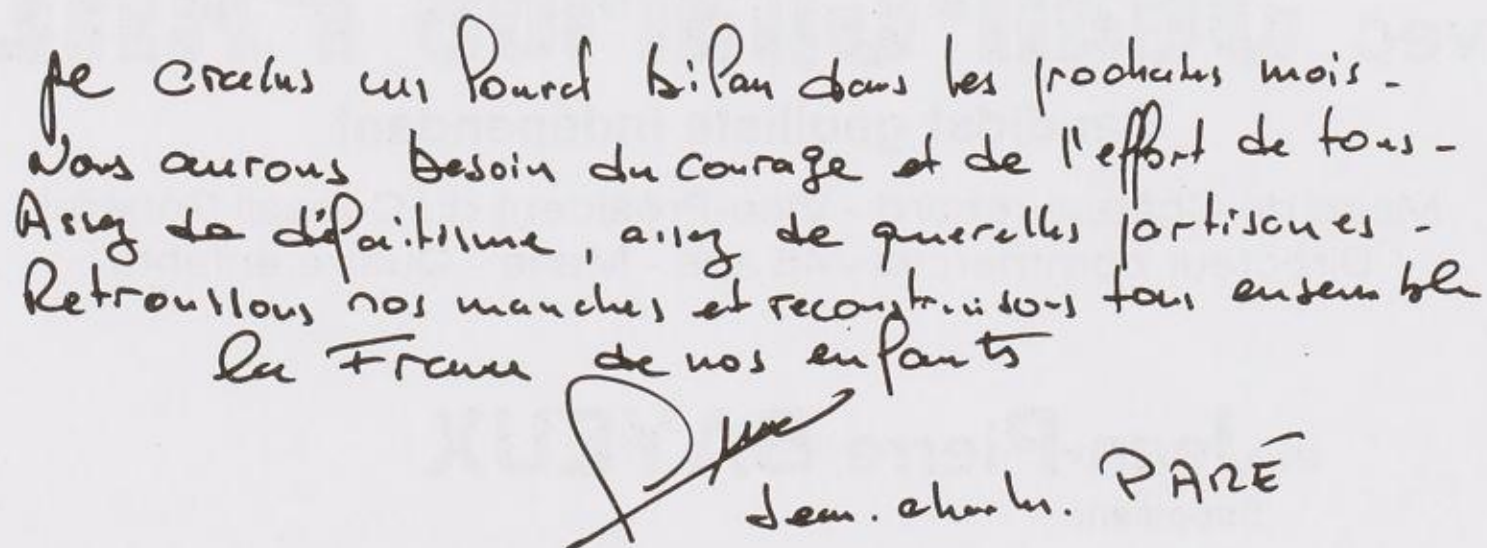 Je crains un lourd bilan dans les prochains mois.
Nous aurons besoin du courage et de l'effort de tous.
Assez de défaitisme, assez de querelles partisanes.
Retroussons nos manches et reconstruisons tous ensemble
la France de nos enfants
Jean-Charles. PARÉ